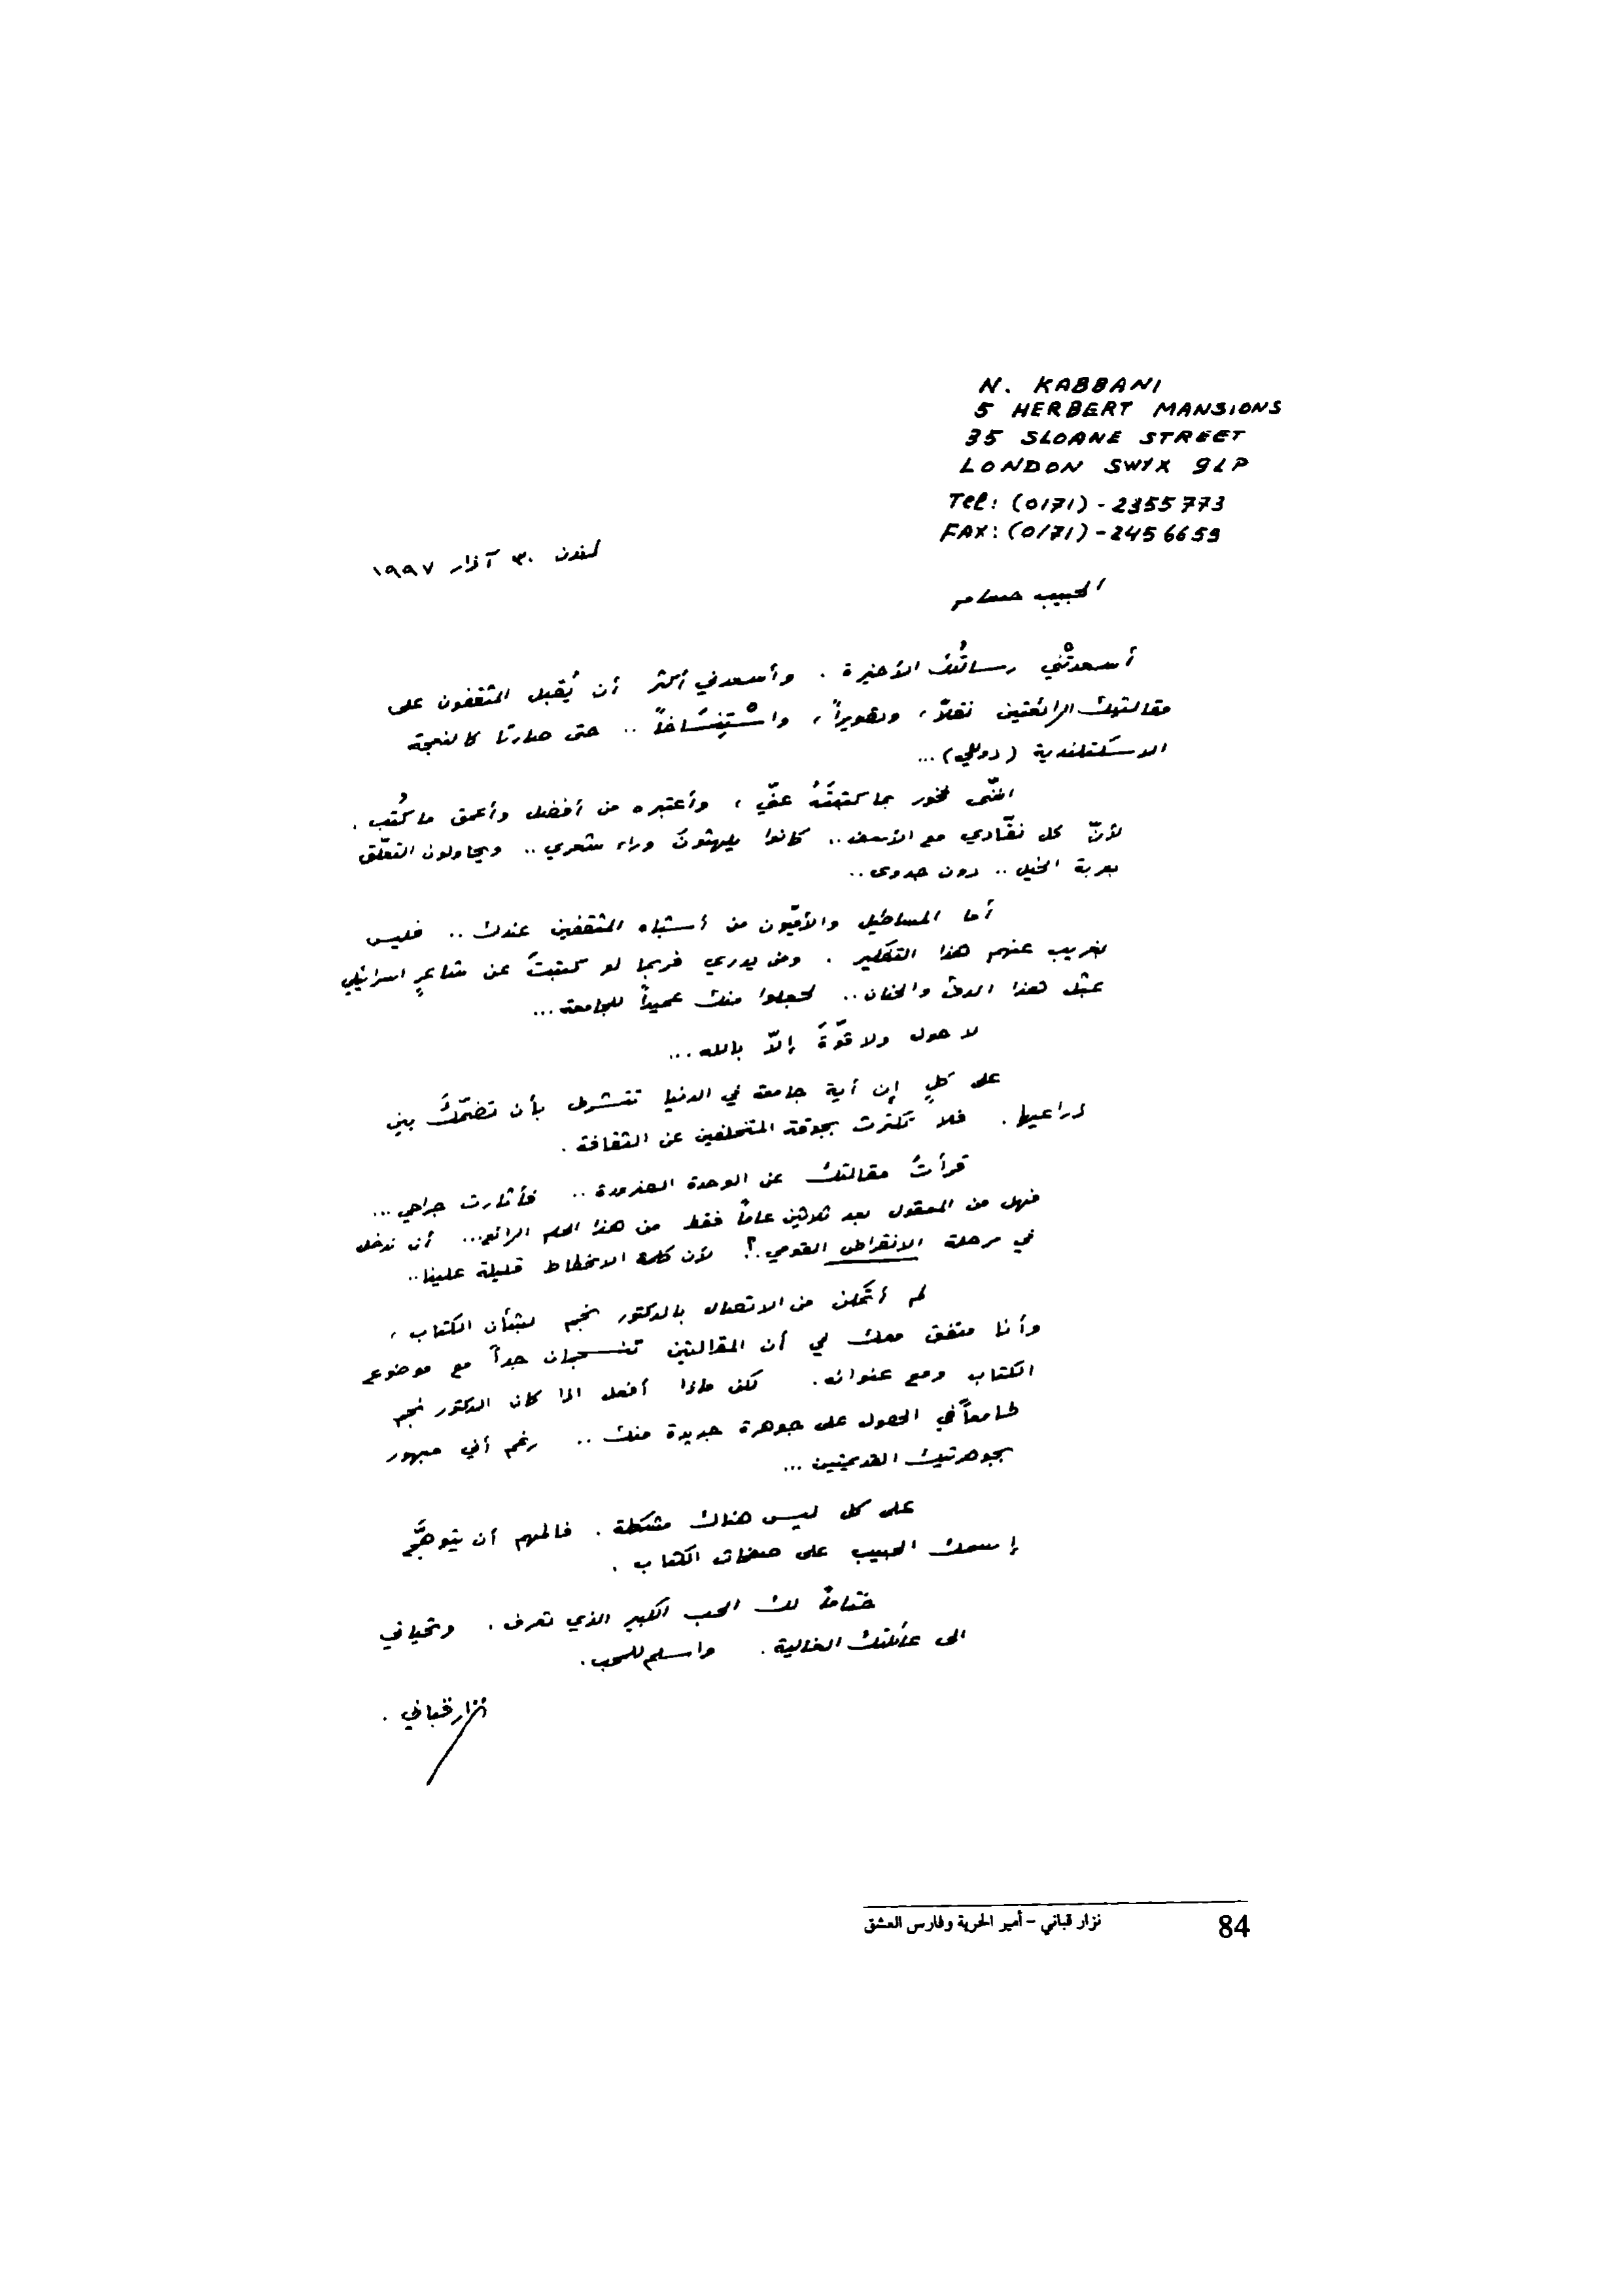 N. KABBANI
5 HERBERT MANSIONS
35 SLOANE STREET
LONDON SW1X 9LP
Tel: (0171) - 2355773
FAX: (0171) - 2456659
لندن ٣٠ آذار ١٩٩٧
الحبيب حسام
أسعدتْني رسالتُك الأخيرة . وأسعدني أكثر أن يُقبل المثقفون على
مقالتيك الرائعتين نقلاً ، وتصويراً ، واسْتِنْسَاخاً .. حتى صارتا كالنعجة
الاسكتلندية (دوللي) ...
إنني فخور بما كتبتَهُ عنّي ، وأعتبره من أفضل وأعمق ما كُتِب .
لأنّ كل نقّادي مع الأسف .. كانوا يلهثونَ وراء شعري .. ويحاولون التعلّق
بعربة الخيل .. دون جدوى ..
أما المساطيل والأميّون من أشباه المثقفين عندك .. فليس
بغريب عنهم هذا التفكير . ومن يدري فربما لو كتبتَ عن شاعرٍ اسرائيلي
بمثل هذا الدفء والحنان .. لجعلوا منك عميداً للجامعة ...
لا حول ولا قوّةَ إلاّ بالله ...
على كلٍ إن أية جامعة في الدنيا تتشرف بأن تضمّكَ بين
ذراعيها . فلا تكترث بجوقة المتخلفين عن الثقافة .
قرأتُ مقالتك عن الوحدة المغدورة .. فأثارت جراحي ...
فهل من المعقول بعد ثلاثين عاماً فقط من هذا الحلم الرائع ... أن ندخل
في مرحلة الانقراض القومي .؟ لأن كلمة الانحطاط قليلة علينا ..
لم أتمكن من الاتصال بالدكتور نجم بشأن الكتاب ،
وأنا متفق معك في أن المقالتين تنسجمان جداً مع موضوع
الكتاب ومع عنوانه . لكن ماذا أفعل اذا كان الدكتور نجم
طامعاً في الحصول على جوهرة جديدة منك .. رغم أني مبهور
بجوهرتيك القديمتين ...
على كل ليس هناك مشكلة . فالمهم أن يتوهَّج
إسمك الحبيب على صفحات الكتاب .
ختاماً لك الحب الكبير الذي تعرف . وتحياتي
الى عائلتك الغالية . واسلم للمحب .
نزار قباني .
84 نزار قباني - أمير الحرية وفارس العشق